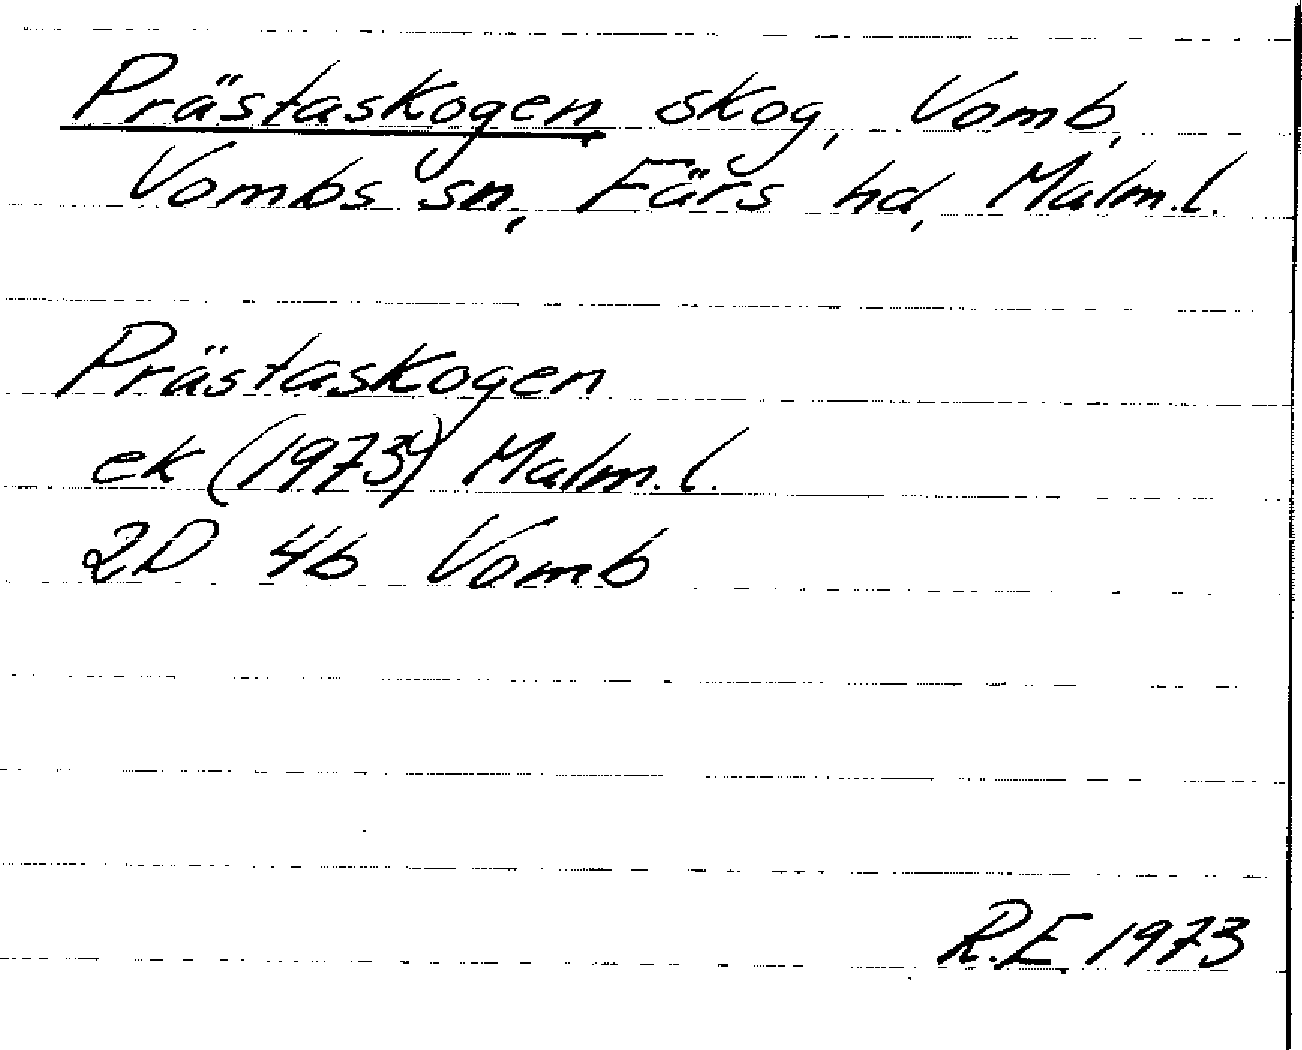 Prästaskogen skog, Vomb,
Vombs sn, Färs hd, Malm.l.
Prästaskogen
ek (1973) Malm.l.
2D 4b Vomb
R.E. 1973